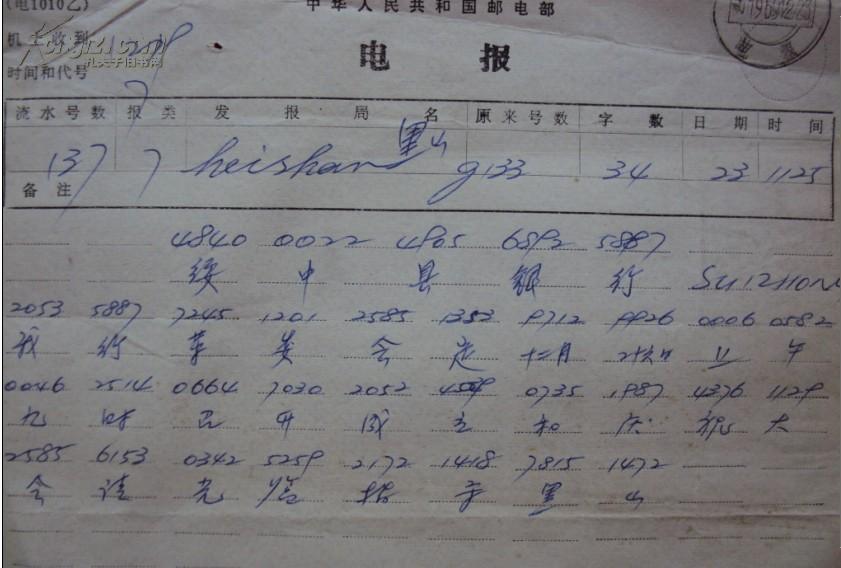 (电1010乙) 中华人民共和国邮电部
机上收到 1229
时间和代号
电 报
孔夫子旧书网
流水号数 报类 发报局名 原来号数 字数 日期 时间
137 7 heishan 黑山 g133 34 23 1125
备注
4840 0022 4905 6892 5887
绥 中 县 银 行 SUIZHON
2053 5887 7245 1201 2585 1353 9712 9926 0006 0582
我 行 革 委 会 定 十二月 二十六日 上 午
0046 2514 0664 7030 2052 4539 0735 1987 4376 1129
九 时 召 开 成 立 和 庆 祝 大
2585 6153 0342 5259 2172 1418 7815 1472
会 请 光 临 指 导 黑 山